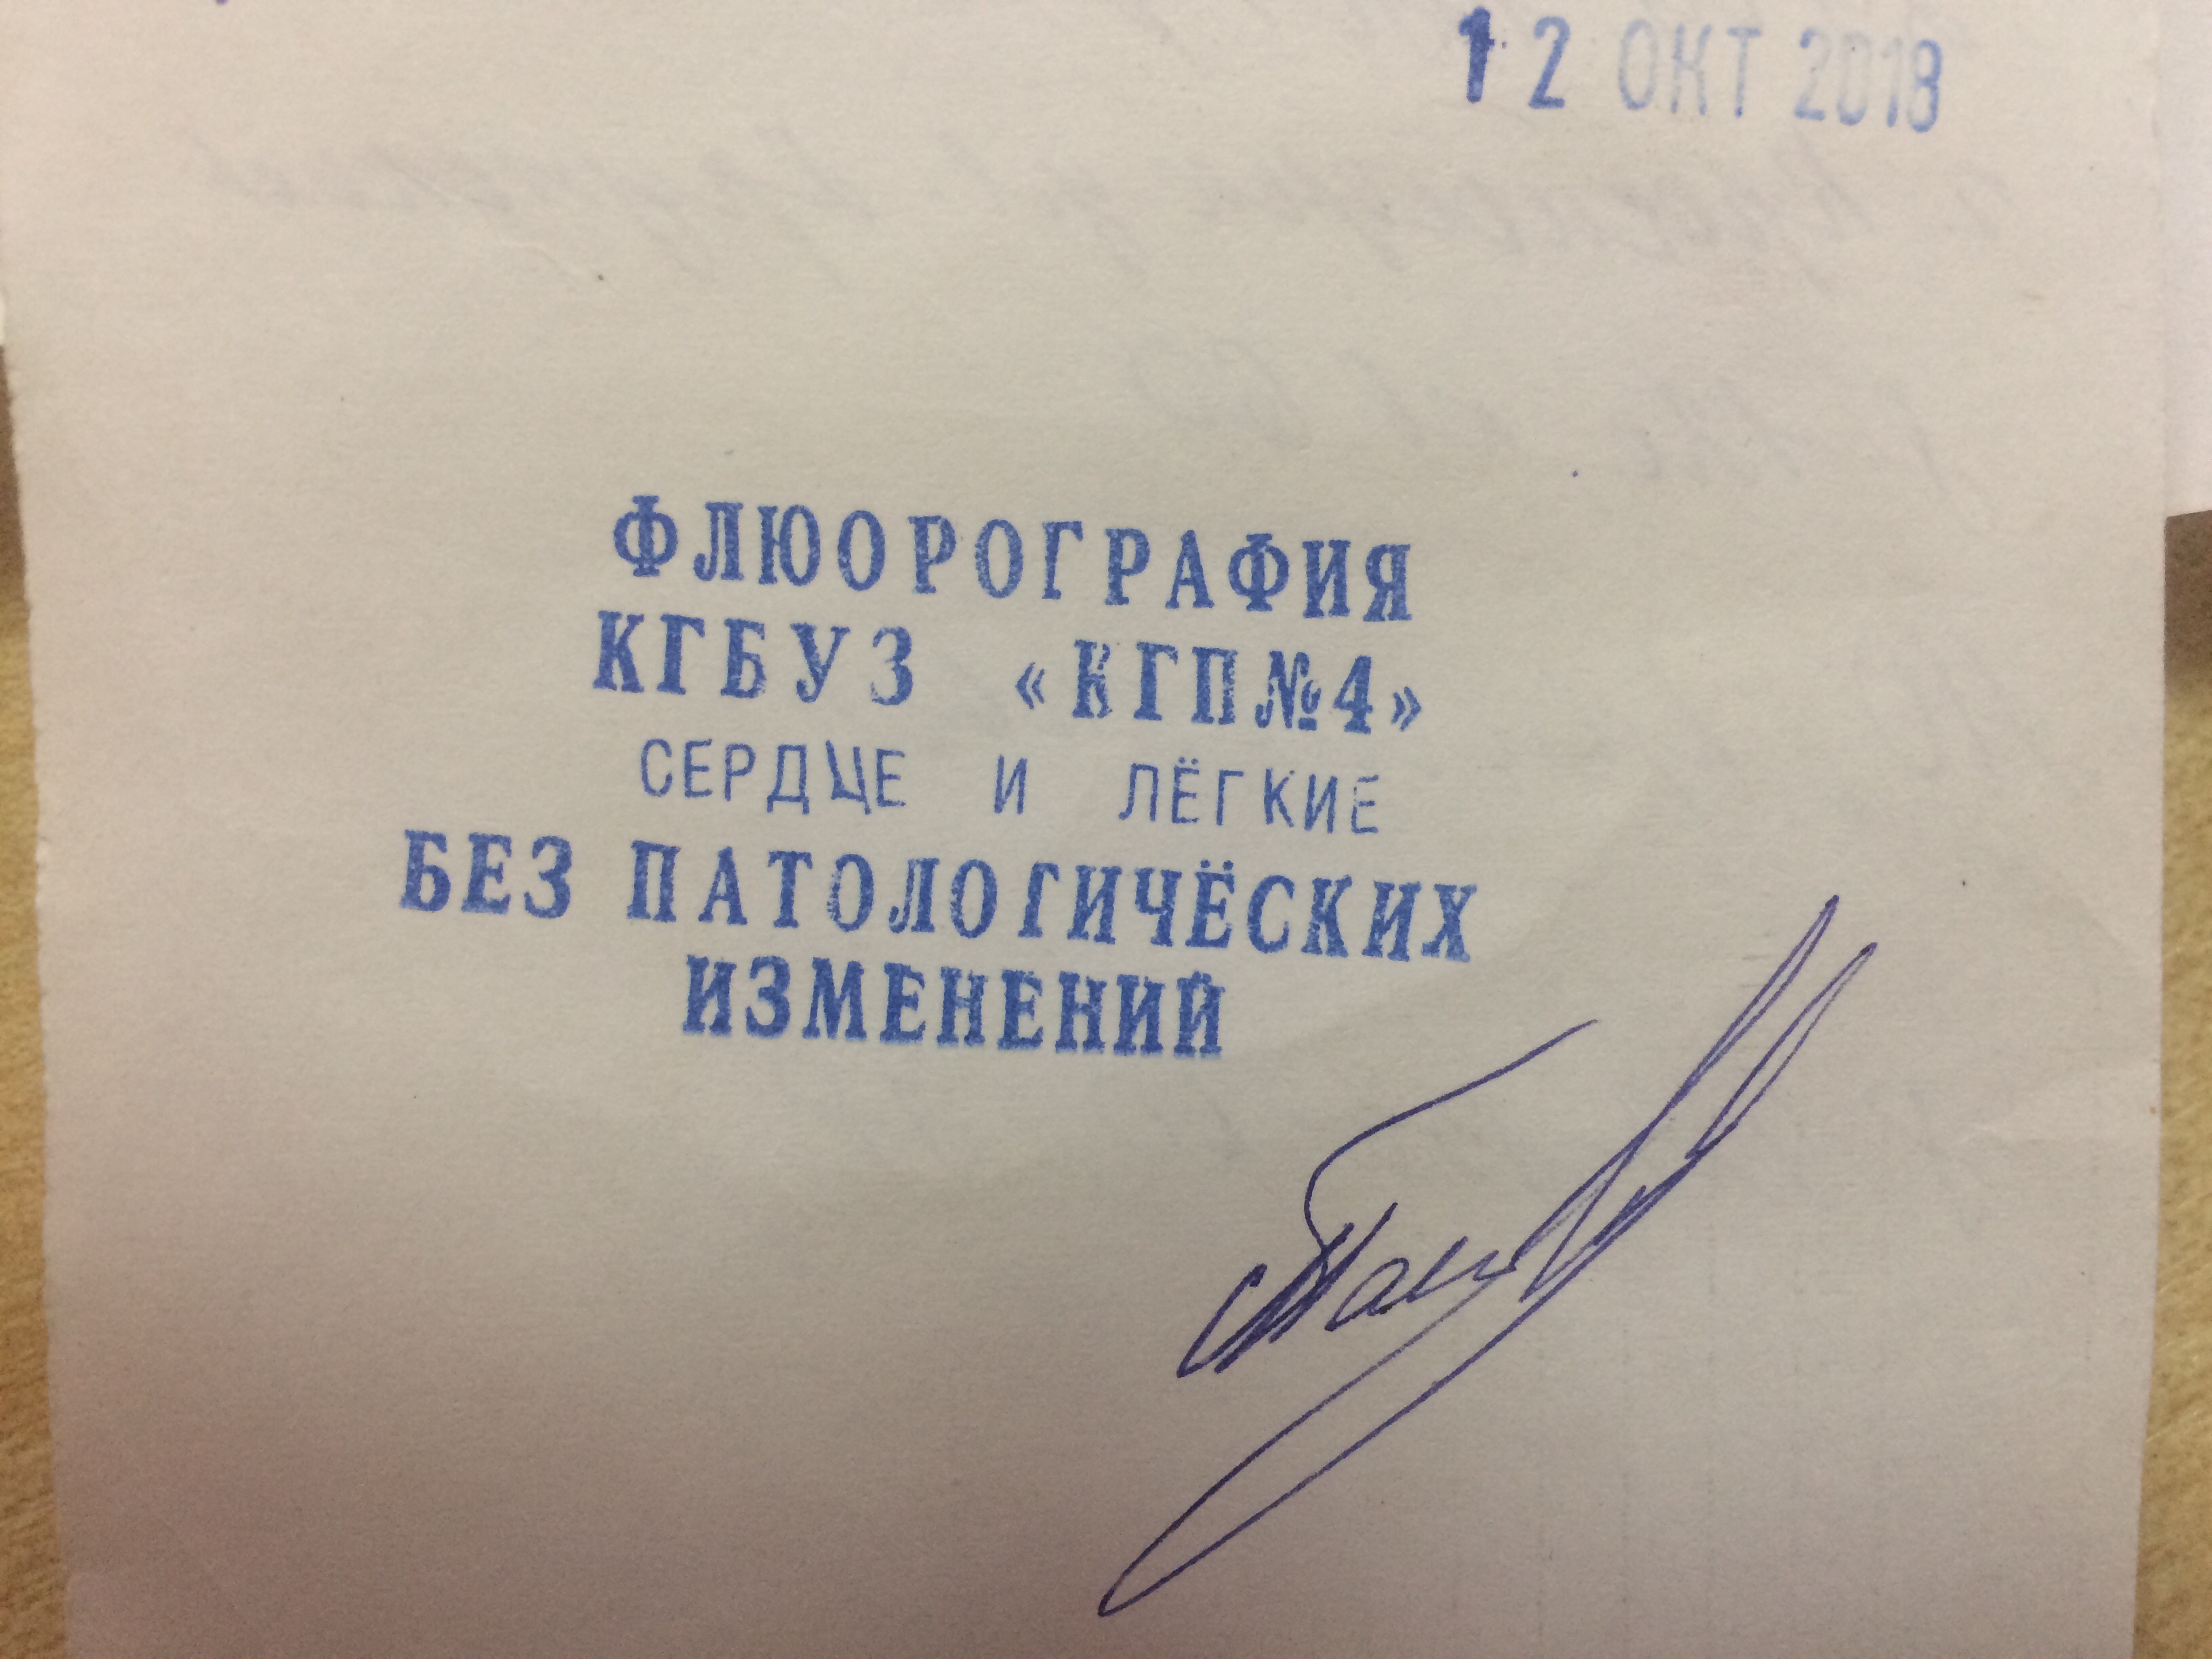 12 ОКТ 2018
ФЛЮОРОГРАФИЯ
КГБУЗ «КГП№4»
СЕРДЦЕ И ЛЁГКИЕ
БЕЗ ПАТОЛОГИЧЁСКИХ
ИЗМЕНЕНИЙ